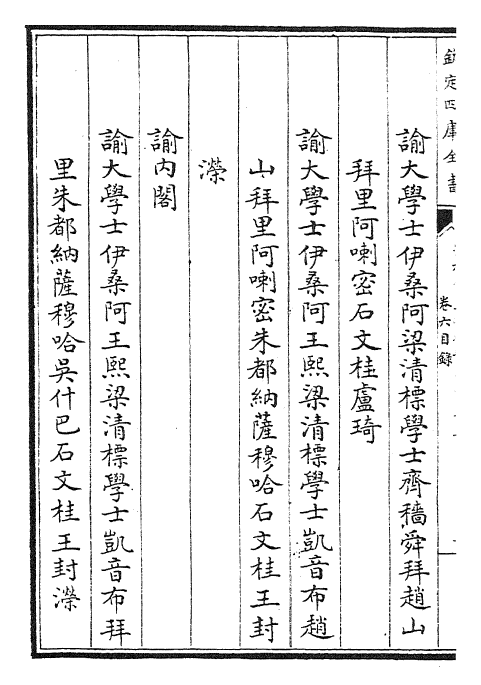 欽定四庫全書
卷六目錄
諭大學士伊桑阿梁清標學士齊穡舜拜趙山
拜里阿喇密石文桂盧琦
諭大學士伊桑阿王熙梁清標學士凱音布趙
山拜里阿喇密朱都納薩穆哈石文桂王封
濚
諭内閣
諭大學士伊桑阿王熙梁清標學士凱音布拜
里朱都納薩穆哈吳什巴石文桂王封濚